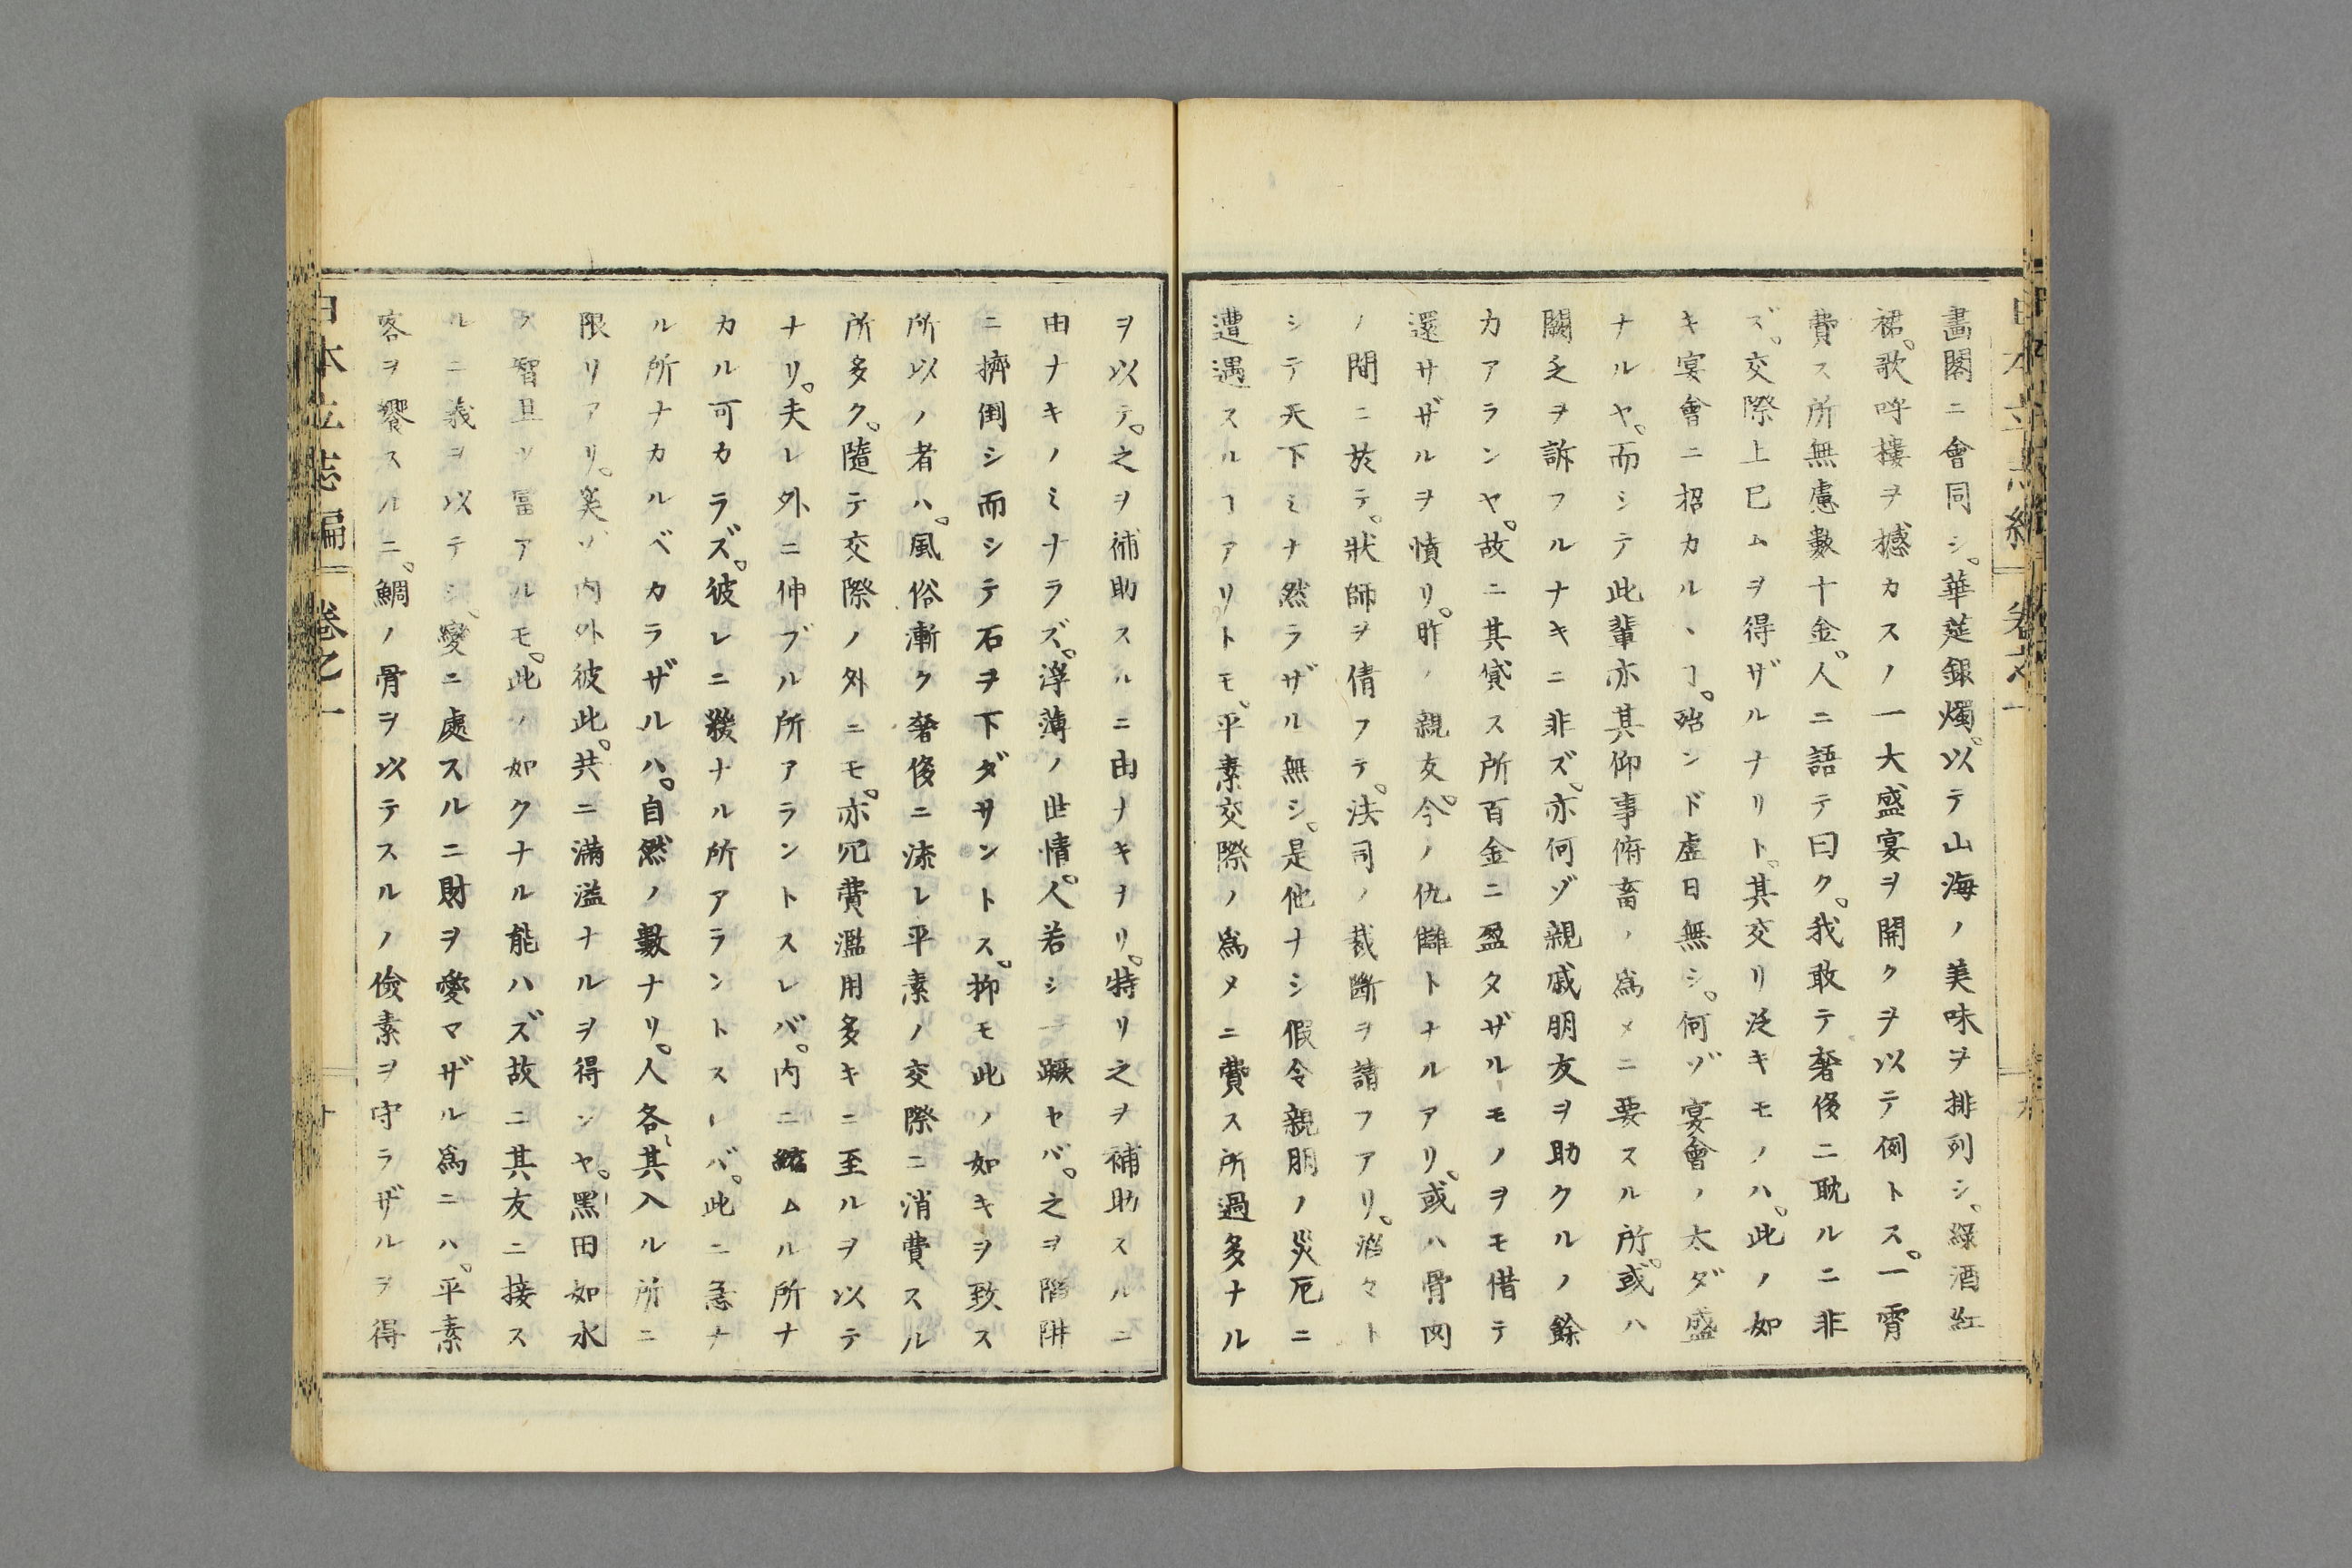 畵閣ニ會同シ。華莚銀燭。以テ山海ノ美味ヲ排列シ。綠酒紅
裙。歌呼摟ヲ撼カスノ一大盛宴ヲ開クヲ以テ例トス。一霄
費ス所無慮數十金。人ニ語テ曰ク。我敢テ奢侈ニ耽ルニ非
ズ。交際上巳ムヲ得ザルナリト。其交リ泛キモノハ。此ノ如
キ宴會ニ招カルヽヿ。殆ンド虛日無シ。何ゾ宴會ノ太ダ盛
ナルヤ。而シテ此輩亦其仰事俯畜ノ爲メニ要スル所。或ハ
闕乏ヲ訴フルナキニ非ズ。亦何ゾ親戚朋友ヲ助クルノ餘
カアランヤ。故ニ其貸ス所百金ニ盈タザルモノヲモ借テ
還サザルヲ憤リ。昨ノ親友。今ノ仇讎トナルアリ。或ハ骨肉
ノ間ニ於テ。狀師ヲ倩フテ。法司ノ裁斷ヲ請フアリ。滔々ト
シテ天下ミナ然ラザル無シ。是他ナシ假令親朋ノ災厄ニ
遭遇スルヿアリトモ。平素交際ノ爲メニ費ス所過多ナル
ヲ以テ。之ヲ補助スルニ由ナキヲリ。特リ之ヲ補助スルニ
由ナキノミナラズ。浮薄ノ世情。人若シ一蹶セバ。之ヲ陷阱
ニ擠倒シ而シテ石ヲ下ダサントス。抑モ此ノ如キヲ致ス
所以ノ者ハ。風俗漸ク奢侈ニ流レ平素ノ交際ニ消費スル
所多ク。隨テ交際ノ外ニモ。亦冗費濫用多キニ至ルヲ以テ
ナリ。夫レ外ニ伸ブル所アラントスレバ。内ニ縮ムル所ナ
カル可カラズ。彼レニ緩ナル所アラントスレバ。此ニ急ナ
ル所ナカルベカラザルハ。自然ノ數ナリ。人各其入ル所ニ
限リアリ。奚ゾ内外彼此。共ニ滿溢ナルヲ得ンヤ。黑田如水
ノ智且ツ冨アルモ。此ノ如クナル能ハズ故ニ其友ニ接ス
ルニ義ヲ以テシ。變ニ處スルニ財ヲ愛マザル爲ニハ。平素
客ヲ饗スルニ。鯛ノ骨ヲ以テスルノ儉素ヲ守ラザルヲ得
日本立志編 卷之一